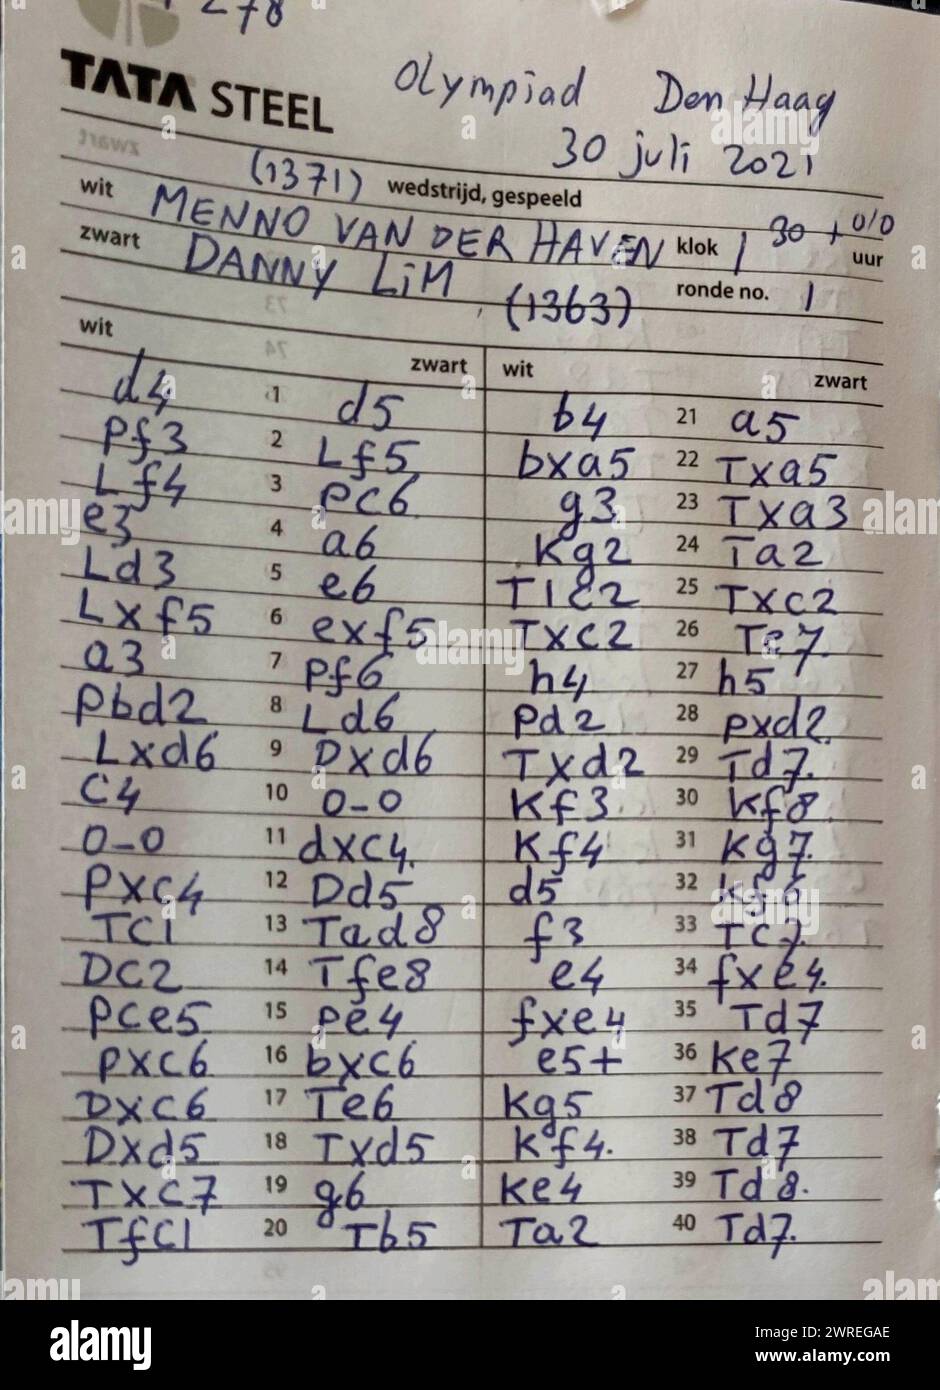 278
TATA STEEL
Olympiad Den Haag
30 juli 2021
zwart
(1371) wedstrijd, gespeeld
wit MENNO VAN DER HAVEN klok 1 30 + 0/0 uur
zwart DANNY LiM (1363) ronde no. 1
73
74
wit zwart wit zwart
d4 1 d5 b4 21 a5
Pf3 2 Lf5 bxa5 22 Txa5
Lf4 3 Pc6 g3 23 Txa3
e3 4 a6 Kg2 24 Ta2
Ld3 5 e6 T1c2 25 Txc2
Lxf5 6 exf5 Txc2 26 Te7.
a3 7 Pf6 h4 27 h5
Pbd2 8 Ld6 Pd2 28 pxd2.
Lxd6 9 Dxd6 Txd2 29 Td7.
C4 10 0-0 Kf3. 30 Kf8.
0-0 11 dxc4. Kf4 31 Kg7.
Pxc4 12 Dd5 d5 32 Kf6
TC1 13 Tad8 f3 33 Tc7
DC2 14 Tfe8 e4 34 fxe4.
Pce5 15 Pe4 fxe4 35 Td7
Pxc6 16 bxc6 e5+ 36 Ke7
Dxc6 17 Te6 Kg5 37 Td8
Dxd5 18 Txd5 Kf4. 38 Td7
Txc7 19 g6 Ke4 39 Td8.
Tfc1 20 Tb5 Ta2 40 Td7.
alamy
Image ID: 2WREGAE
www.alamy.com